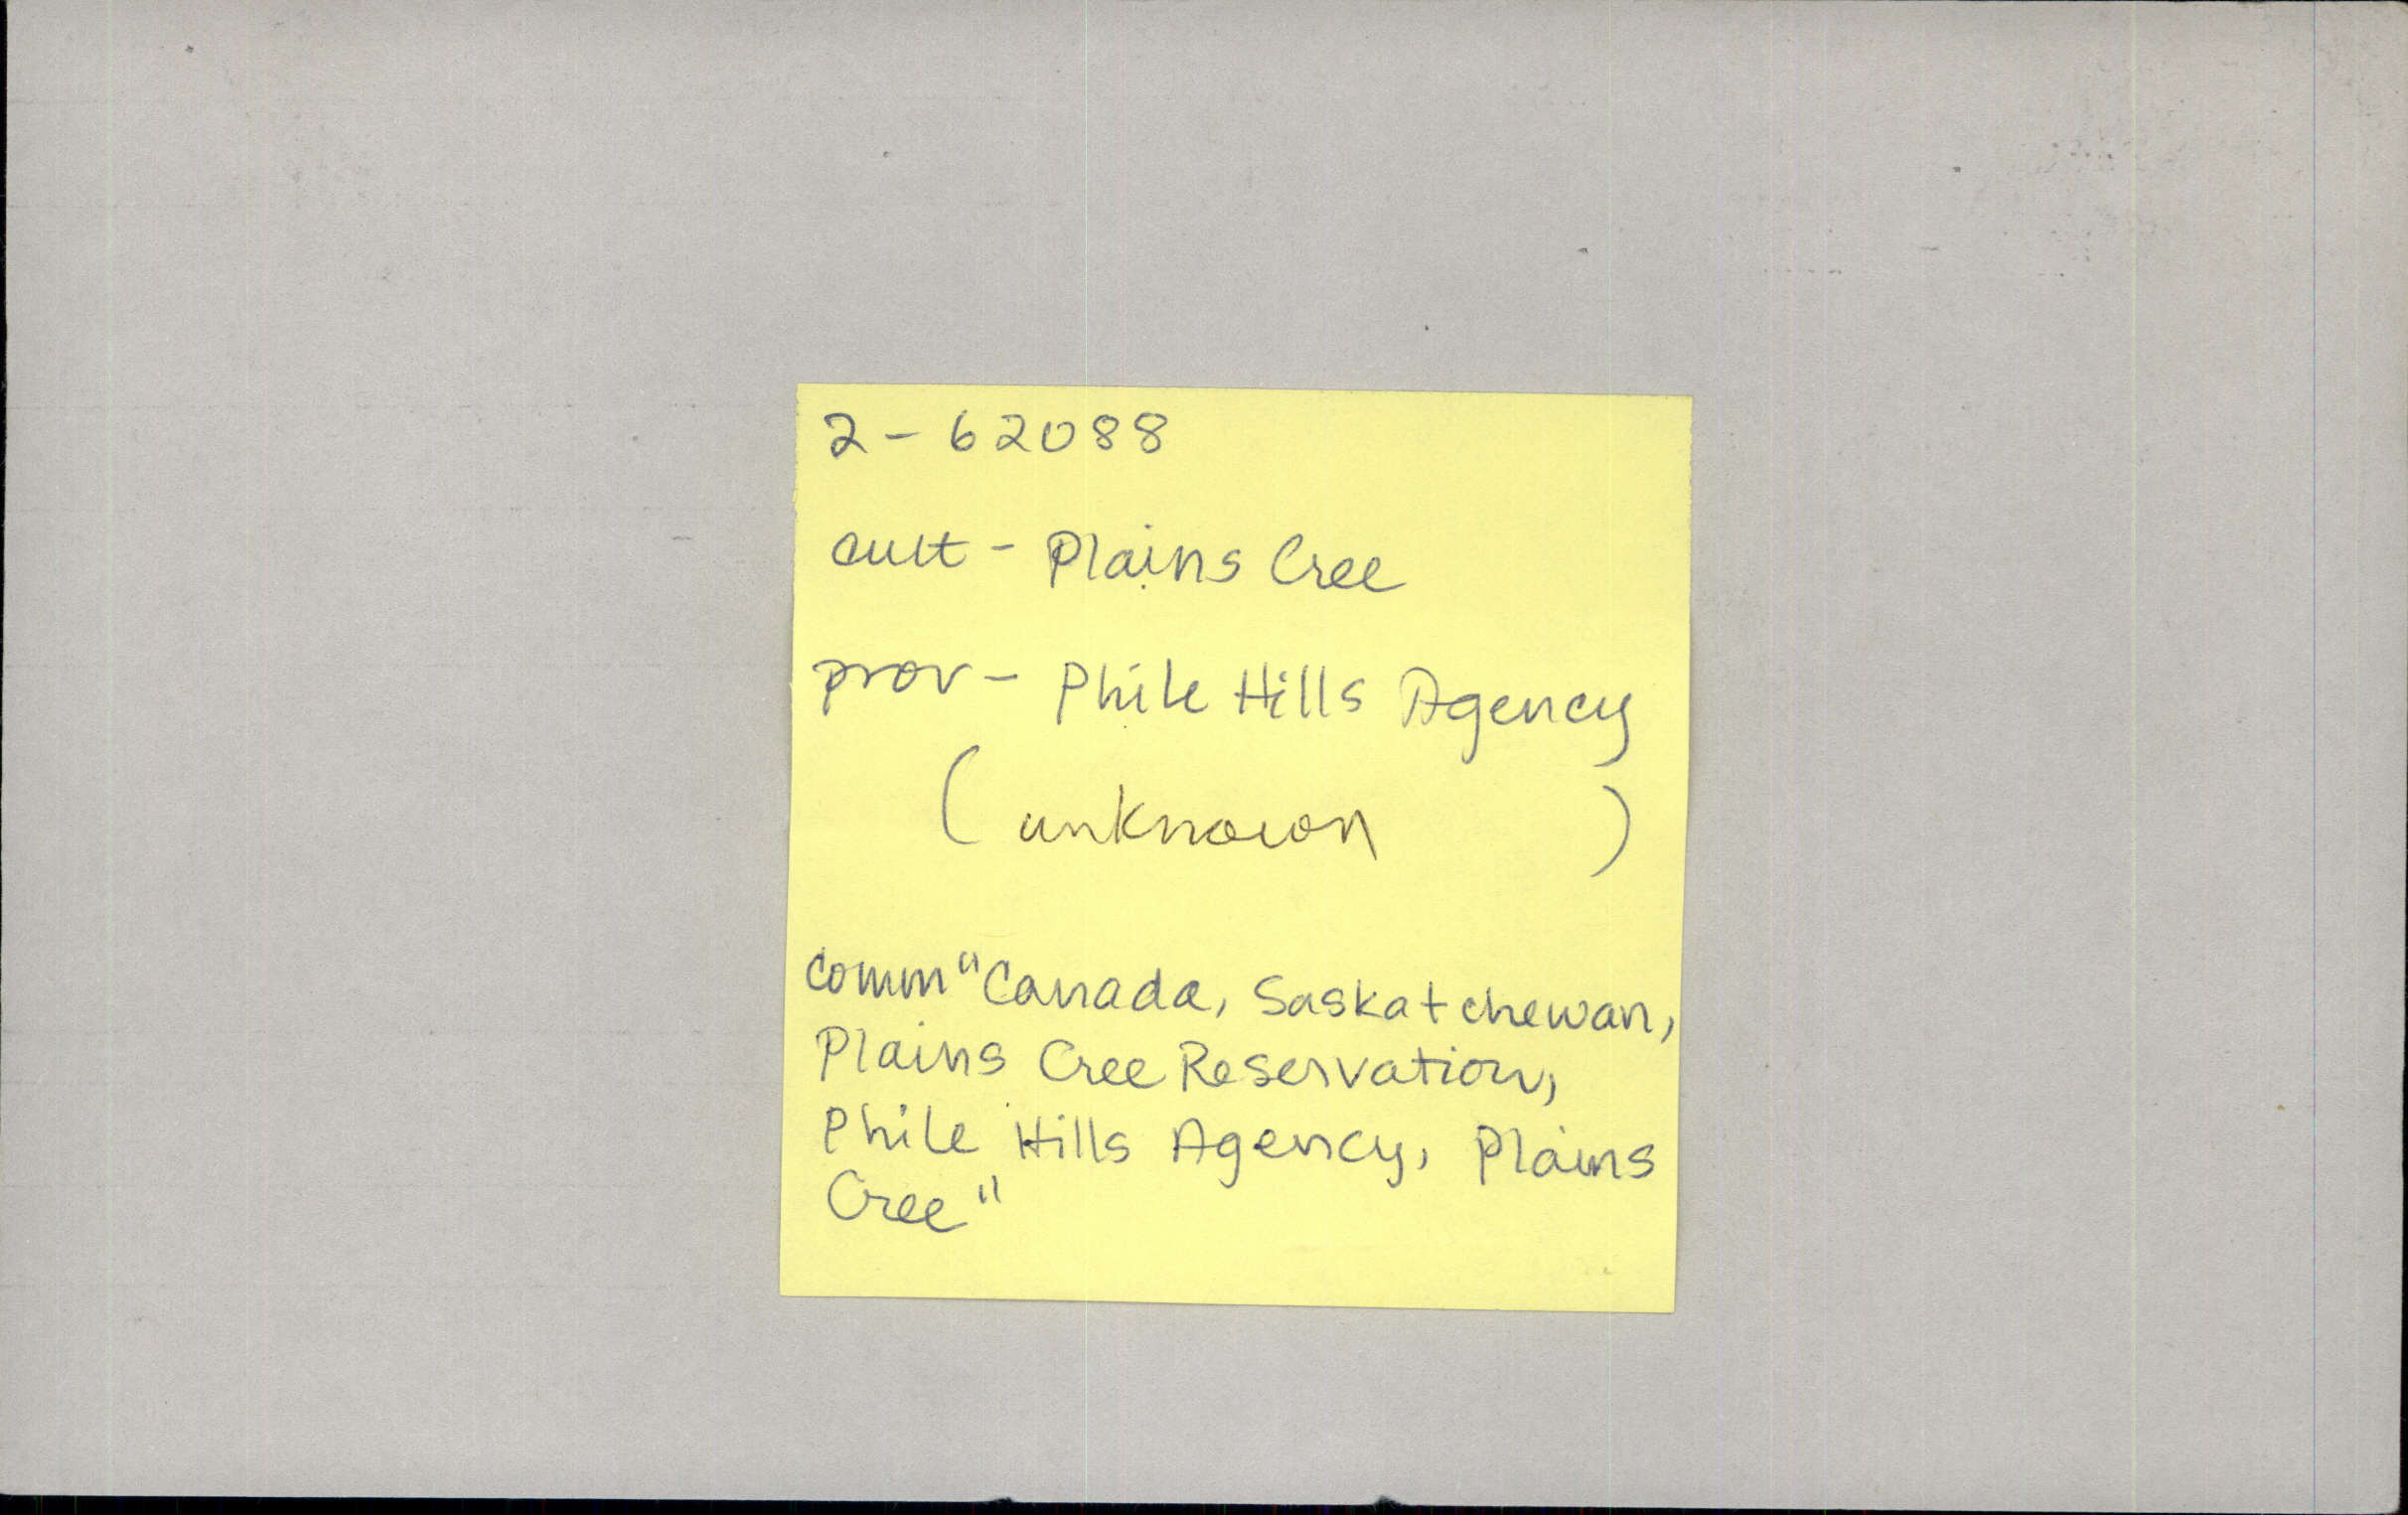 2-62088
cult - Plains Cree
prov - Phile Hills Agency
(unknown )
comm "Canada, Saskatchewan,
Plains Cree Reservation,
Phile Hills Agency, Plains
Cree"